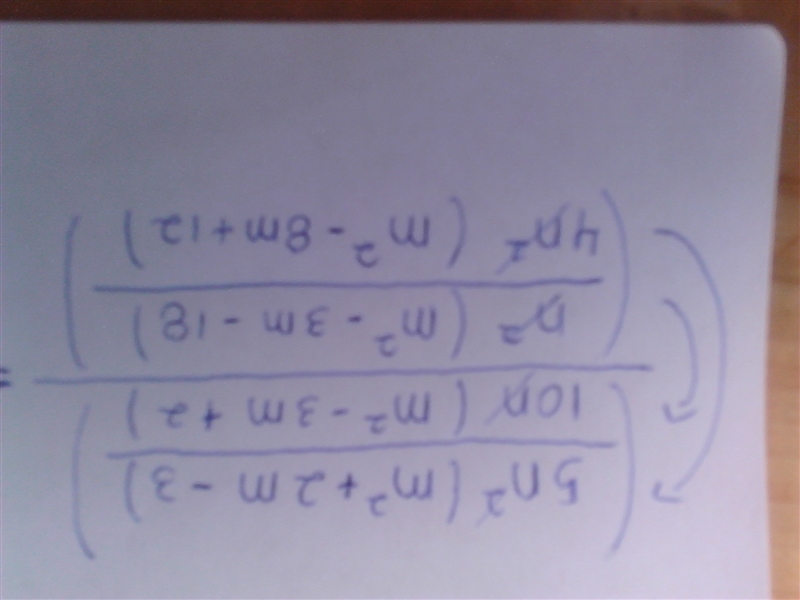 5n² (m² + 2m - 3)
10n (m² - 3m + 2)
n² (m² - 3m - 18)
4n² (m² - 8m + 12)
=